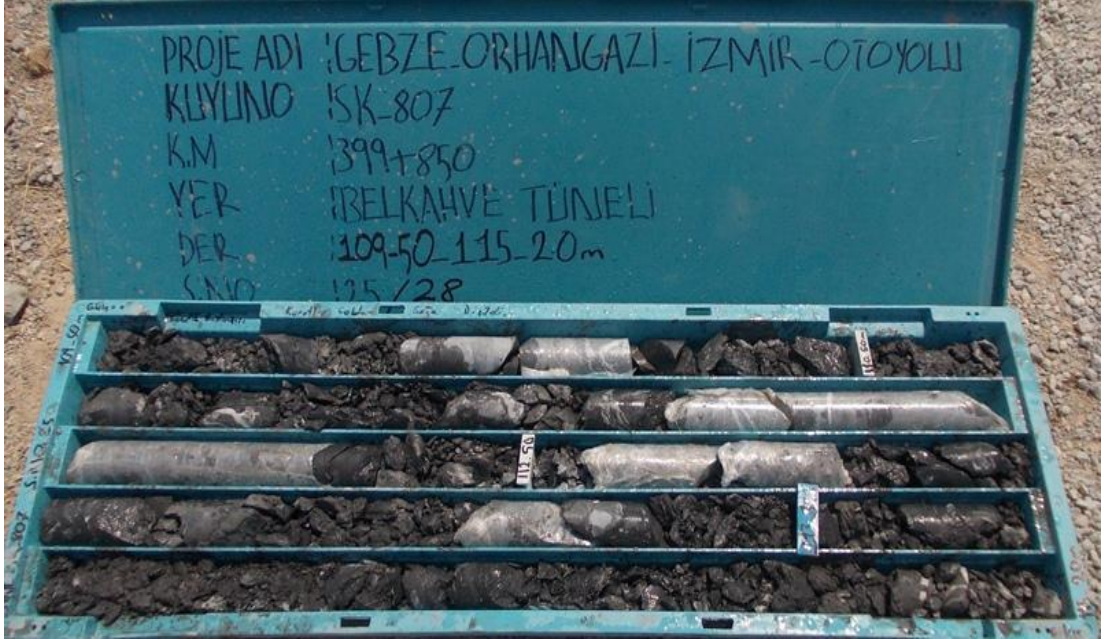 PROJE ADI :GEBZE-ORHANGAZİ-İZMİR-OTOYOLU
KUYUNO :SK-807
K.M :399+850
YER :BELKAHVE TÜNELİ
DER :109-50-115-20m
S.NO :25/28
112.50